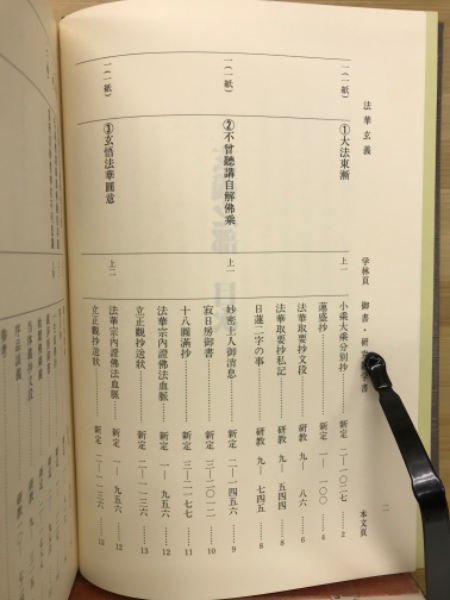 法華玄義　学林頁　御書・研　書　本文頁
一(一紙)　①大法東漸　上一　小乗大乗分別抄………新定　二―一〇二七……2
蓮盛抄………新定　一―一〇〇……4
法華取要抄文段………研教　九―八六……6
法華取要抄私記………研教　九―五四四……8
日蓮二字の事………研教　九―七四五……8
一(一紙)　②不曾聽講自解佛乘　上一　妙密上人御消息………新定　二―一四五六……9
寂日房御書………新定　三―二〇一二……10
十八圓滿抄………新定　三―二一七七……11
法華宗内證佛法血脈………新定　一―九五六……12
立正觀抄送状………新定　二―一一三六……13
一(一紙)　③玄悟法華圓意　上二　法華宗内證佛法血脈………新定　一―九五六……12
立正觀抄送状………新定　二―一一三六……13
二